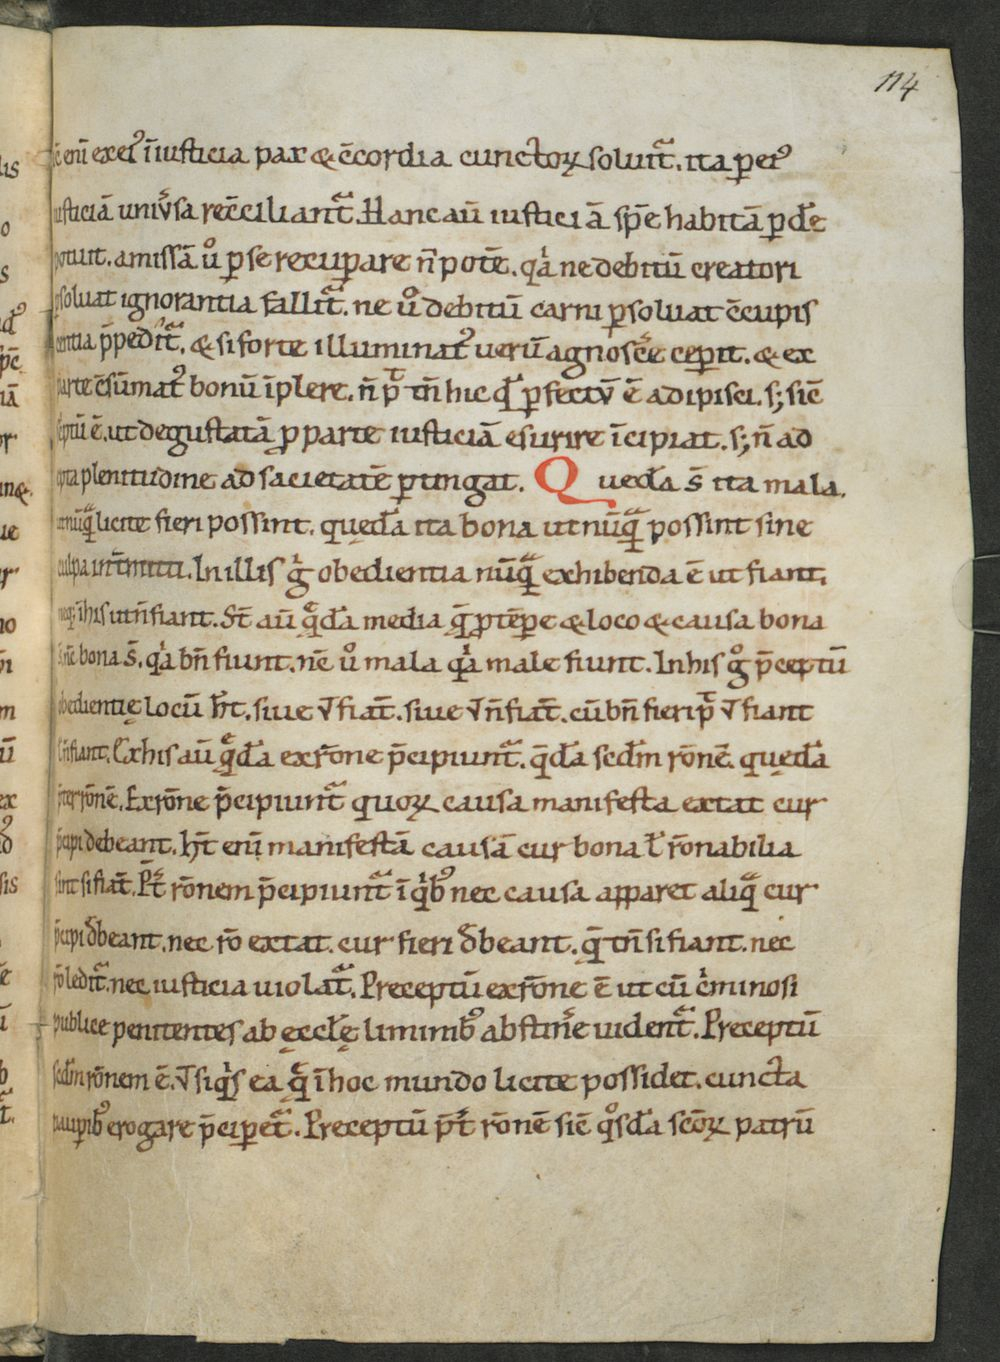 114
c̄ eni᷑ ex ei᷒ īiusticia pax & c̄cordia cunctoꝝ soluit᷑. ita ꝑ ei᷒
iusticiā univ̄sa rec̄ciliant᷑. Hanc aū iusticiā sp̄e habitā ꝑdēe
potuit. amissā ů ꝑ se recuꝑare n̄ potē. qͥa ne debitū creatori
ꝑsoluat ignorantia fallit᷑. ne ů debitū carni ꝑsoluat c̄cupis
centia p̄pedit᷑. & si forte illuminat᷒ uerū agnosc̄e ceꝑit. & ex
parte c̄sūmat᷒ bonū īplere. n̄ pͭ tn̄ hic qđ ꝑfectū ē adipisci. s; sic̄
sc̄ptū ē. ut degustatā ꝓ parte iusticiā esurire īcipiat. s; n̄ ad
epta plenitudine ad sacietatē ꝑtingat. Quedā s̄ ita mala.
ut nūqͣ licite fieri possint. quędā ita bona ut nūqͣ possint sine
culpa int̄mitti. In illis gͥ obedientia nūqͣ exhibenda ē ut fiant.
neq; ī his ut n̄ fiant. St̄ aū qͣdā media q̄ ꝓ tēꝑe & loco & causa bona
s̄ nc̄ bona s̄. qͥa bn̄ fiunt. nc̄ ů mala qͥa male fiunt. In his gͦ p̄ceptū
obedientię locū ht̄. siue v̄ fiāt. siue v̄ n̄ fiāt. cū bn̄ fieri pͭ v̄ fiant
v̄ n̄ fiant. Ex his aū qͣdā ex rōne p̄cipiunt᷑. q̄dā scdm̄ rōnē. quędā
p̄ter rōnē. Ex rōne p̄cipiunt᷑ quoꝝ causa manifesta extat cur
p̄cipi debeant. ht̄ enī manifestā causā cur bona ł rōnabilia
sint si fiāt. Pt̄ rōnem p̄cipiunt᷑ ī qͥb᷒ nec causa apparet aliqͣ cur
p̄cipi đbeant. nec rō extat. cur fieri đbeant. q̄ tn̄ si fiant. nec
rō ledit᷑. nec iusticia uiolat᷑. Preceptū ex rōne ē ut cū cͥminosi
publice penitentes ab ęccłę liminib᷒ abstin̄e uident᷑. Preceptū
scdm̄ rōnem ē. v̄ siqͥs ea qͣ ī hoc mundo licite possidet. cuncta
pauꝑib᷒ erogare p̄ciꝑet᷑. Preceptū p̄t rōnē sic̄ qͦsdā scōꝝ patrū